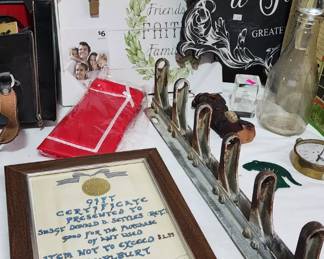 $6
Friends
FAITH
Family
GREATE
GIFT
CERTIFICATE
PRESENTED TO
SMSGT DONALD D. SETTLES RET.
GOOD FOR THE PURCHASE
OF ANY USED
ITEM NOT TO EXCEED $1.99
HURLBURT